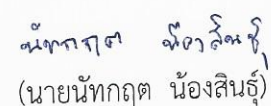 นัทกฤต น้องสินธุ์
(นายนัทกฤต น้องสินธุ์)